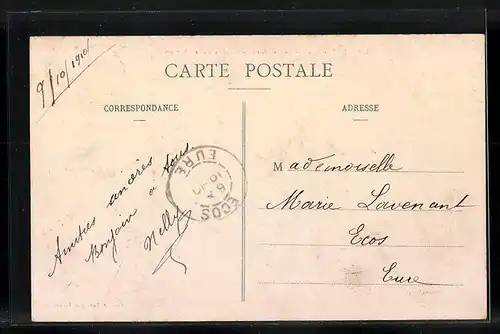 9/10/1910
CARTE POSTALE
CORRESPONDANCE
ADRESSE
Amitiés sincères
Bonjour à tous
Nelly
Mademoiselle
Marie Lavenant
Ecos
Eure
ECOS
EURE